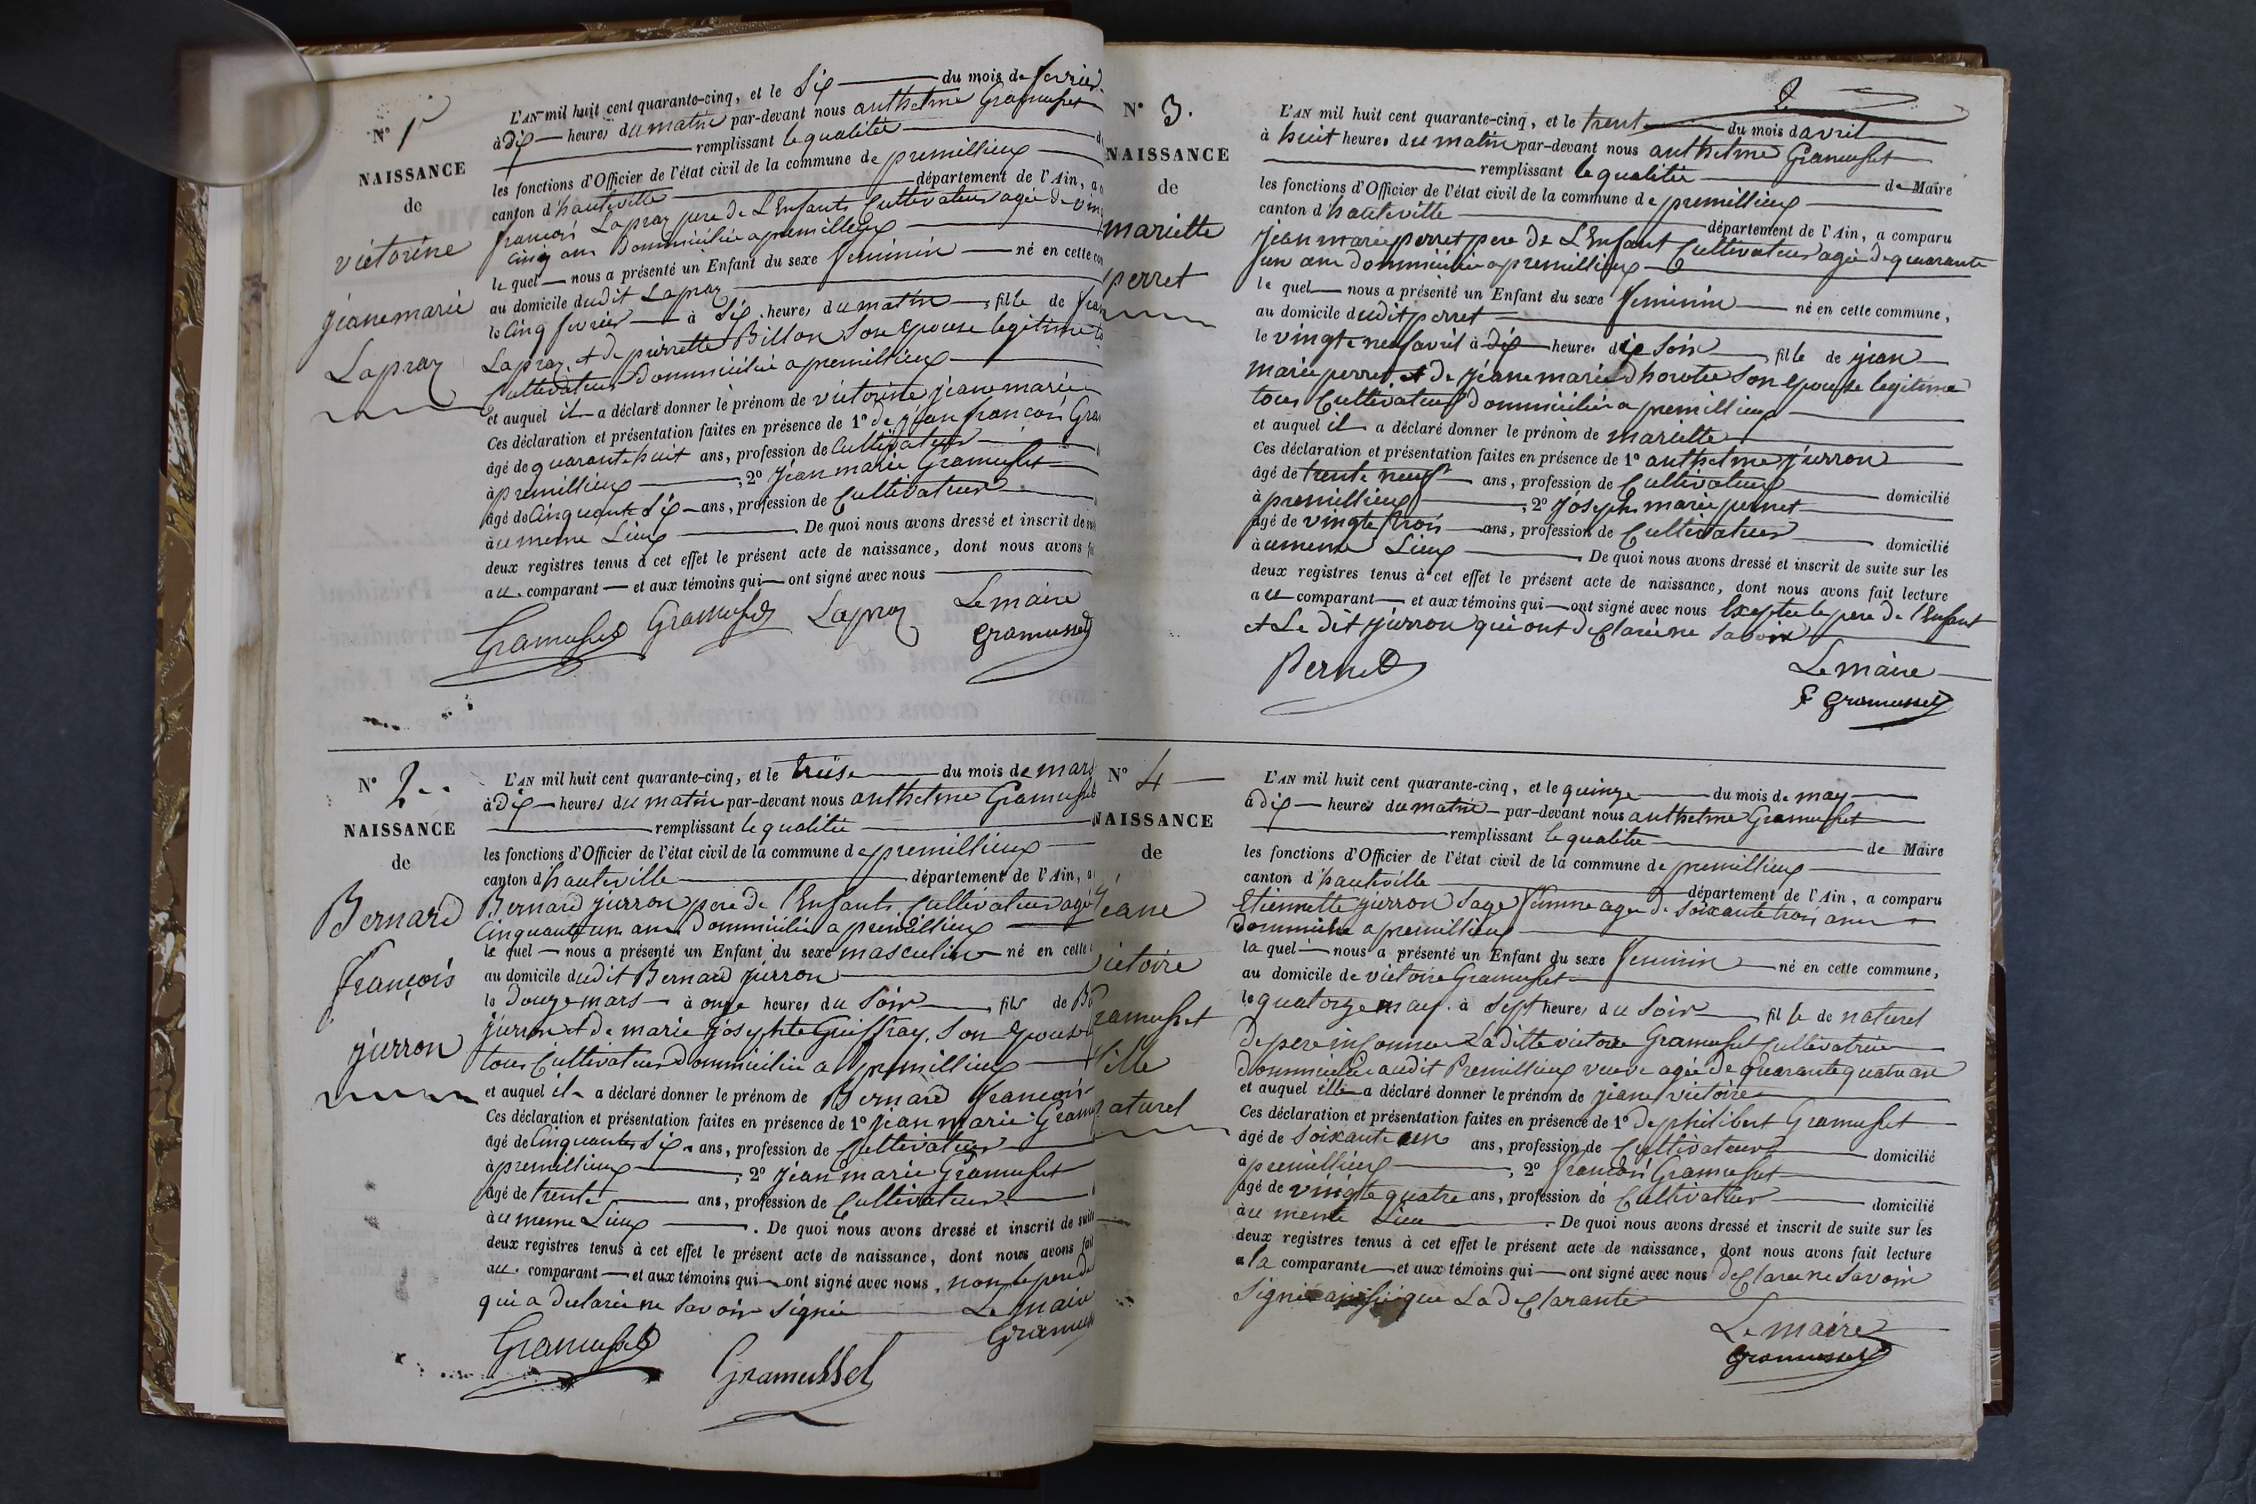 N° 1r
NAISSANCE
de
victorine
jeanemarie
Lapraz
L'AN mil huit cent quarante-cinq, et le Six du mois de fevrier
à Dix heures du matin par-devant nous anthelme Gramusset
remplissant le qualitée
les fonctions d'Officier de l'état civil de la commune de premillieux
canton d'hauteville département de l'Ain, a
françois Lapraz pere de L'Enfants Cultivateur agée de
cinq ans Dommiciliée a premillieux
le quel nous a présenté un Enfant du sexe feminin né en cette
au domicile dudit Lapraz
le Cinq fevrier à Six heures du matin, fille de
Lapraz et de pierrette Billon Son Epouse legitime
Cultivateur Dommiciliée a premillieux
et auquel il a déclaré donner le prénom de victorine jeane marie
Ces déclaration et présentation faites en présence de 1° de jean françois
âgé de quarante huit ans, profession de Cultivateur
à premillieux, 2° jean marie Gramusset
âgé de Cinquante Six ans, profession de Cultivateur
à u meme Lieux. De quoi nous avons dressé et inscrit de
deux registres tenus à cet effet le présent acte de naissance, dont nous avons
au comparant et aux témoins qui ont signé avec nous
Gramusset Gramusset Lapraz Le maire
Gramusset
N° 2
NAISSANCE
de
Bernard
françois
jurron
L'AN mil huit cent quarante-cinq, et le treise du mois de mars
à Dix heures du matin par-devant nous anthelme Gramusset
remplissant le qualitée
les fonctions d'Officier de l'état civil de la commune de premillieux
canton d'hauteville département de l'Ain, a
Bernard jurron pere de l'Enfants Cultivateur agé
Cinquante un ans Dommiciliée a premillieux
le quel nous a présenté un Enfant du sexe masculin né en cette
au domicile dudit Bernard jurron
le Douze mars à onze heures du Soir, fils de
jurron et de marie josephte Guiffray, Son Epouse
tous Cultivateur Dommiciliée a Premillieux
et auquel il a déclaré donner le prénom de Bernard françois
Ces déclaration et présentation faites en présence de 1° jean marie
âgé de Cinquante Six ans, profession de Cultivateur
à premillieux, 2° jean marie Gramusset
âgé de trente ans, profession de Cultivateur
à u meme Lieux. De quoi nous avons dressé et inscrit de suite
deux registres tenus à cet effet le présent acte de naissance, dont nous avons fait
au comparant et aux témoins qui ont signé avec nous, non le pere
qui a declarée ne Savoir Signée Le maire
Gramusset Gramussel
2
N° 3.
NAISSANCE
de
mariette
perret
L'AN mil huit cent quarante-cinq, et le trent du mois d avril
à huit heures du matin par-devant nous anthelme Gramusset
remplissant le qualitée de Maire
les fonctions d'Officier de l'état civil de la commune de premillieux
canton d'hauteville département de l'Ain, a comparu
jean marie perret pere de L'Enfant Cultivateur agée de quarante
un ans Dommiciliée a premillieux
le quel nous a présenté un Enfant du sexe feminin né en cette commune,
au domicile dudit perret
le vingt e neuf avril à dix heures du Soir, fille de jean
marie perret et de jeane marie Son Epouse legitime
tous Cultivateur Dommiciliée a premillieux
et auquel il a déclaré donner le prénom de mariette
Ces déclaration et présentation faites en présence de 1° anthelme jurron
âgé de trente neuf ans, profession de Cultivateur domicilié
à premillieux, 2° joseph marie pernet
âgé de vingte trois ans, profession de Cultivateur domicilié
à u meme Lieux. De quoi nous avons dressé et inscrit de suite sur les
deux registres tenus à cet effet le présent acte de naissance, dont nous avons fait lecture
au comparant et aux témoins qui ont signé avec nous Exeptée le pere de l'Enfant
et Le dit jurron qui ont declarée ne Savoir
Pernet Le maire
Gramusset
N° 4
NAISSANCE
de
L'AN mil huit cent quarante-cinq, et le quinze du mois de may
à dix heures du matin par-devant nous anthelme Gramusset
remplissant le qualitée de Maire
les fonctions d'Officier de l'état civil de la commune de premillieux
canton d'hauteville département de l'Ain, a comparu
Etiennette jurron Sage femme agee de Soixante trois ans
Dommiciliée a premillieux
la quel nous a présenté un Enfant du sexe feminin né en cette commune,
au domicile de victoire Gramusset
le quatorze may à Sept heures du Soir, fille de naturel
De pere inconnue La ditte victoire Gramusset Cultivatrice
Dommiciliée audit Premillieux veuve agée de quarante quatre ans
et auquel elle a déclaré donner le prénom de jeane victoire
Ces déclaration et présentation faites en présence de 1° de philibert Gramusset
âgé de Soixante un ans, profession de Cultivateur domicilié
à premillieux, 2° françois Gramusset
âgé de vingte quatre ans, profession de Cultivateur domicilié
à u meme Lieu. De quoi nous avons dressé et inscrit de suite sur les
deux registres tenus à cet effet le présent acte de naissance, dont nous avons fait lecture
a la comparante et aux témoins qui ont signé avec nous declaree ne Savoir
Signée ainsi que La declarante
Le maire
Gramusset